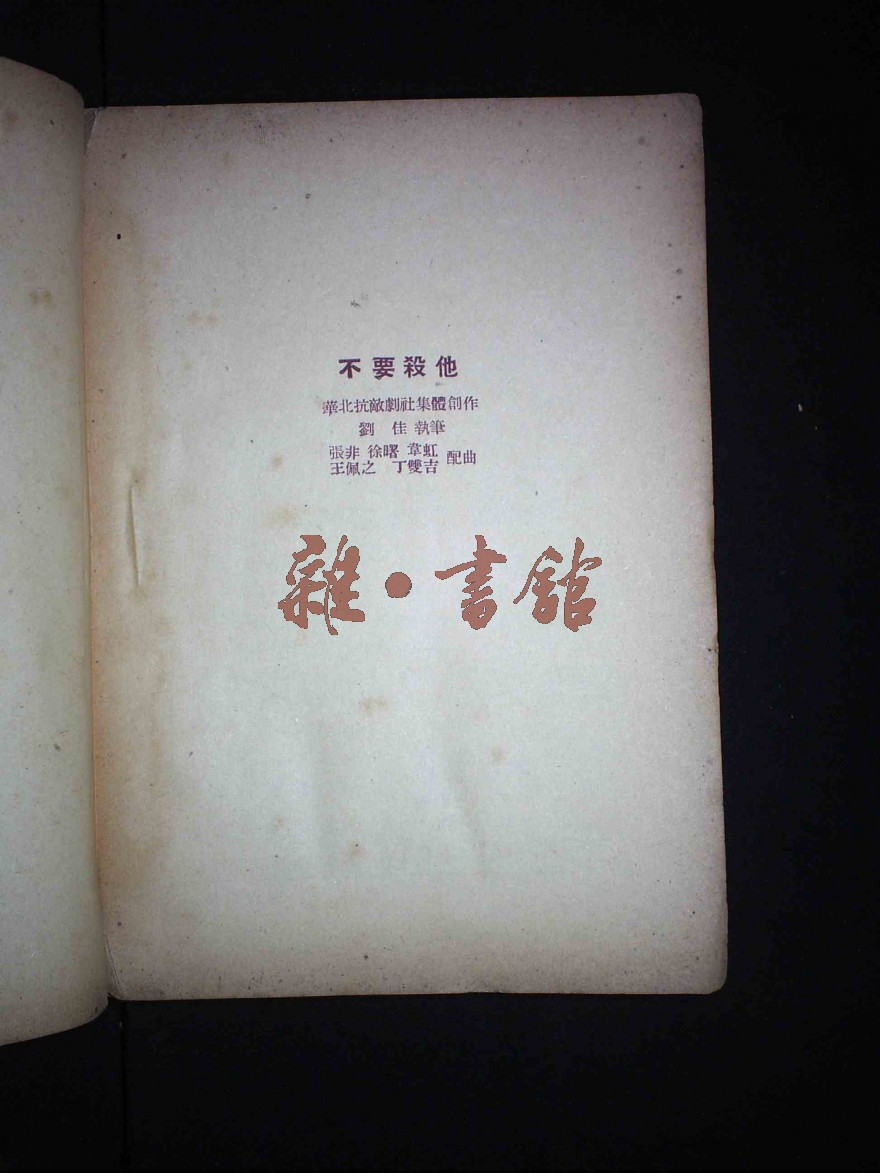 不要殺他
華北抗敵劇社集體創作
劉 佳 執筆
張非 徐曙 韋虹
王佩之 丁雙吉 配曲
雜·書館